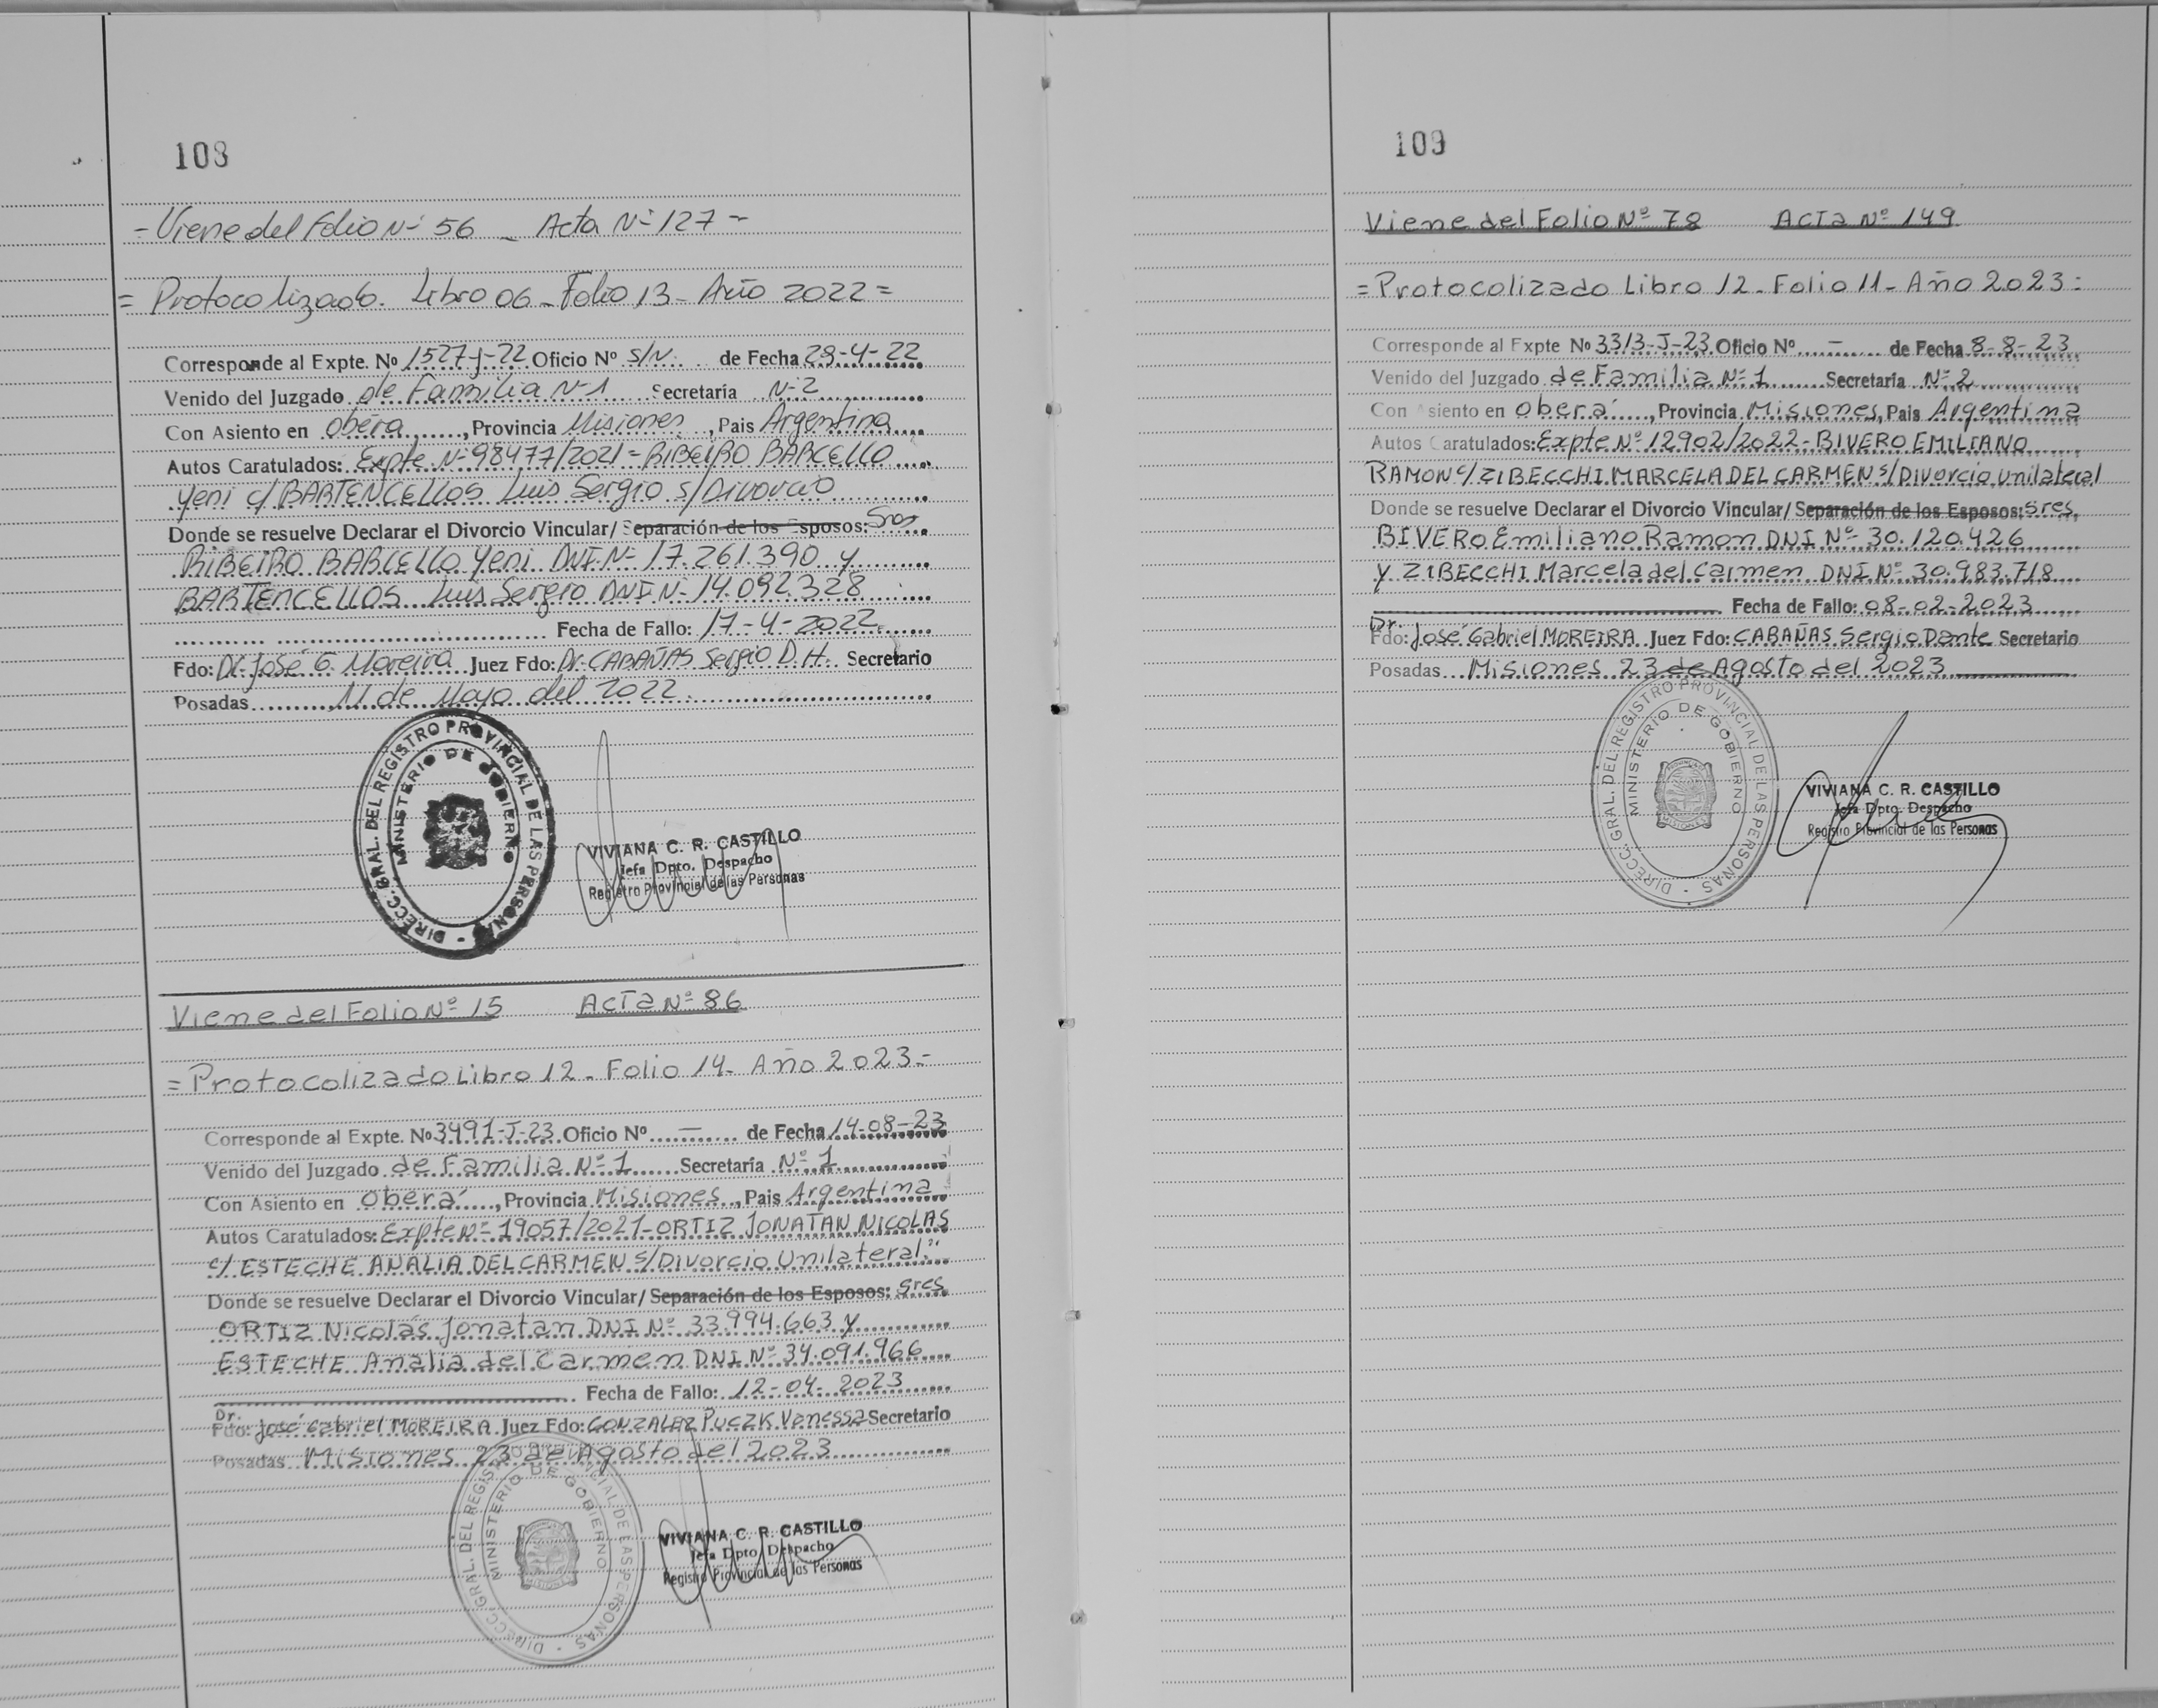 108
= Viene del Folio Nº 56 - Acta Nº 127 =
= Protocolizado. Libro 06 - Folio 13 - Año 2022 =
Corresponde al Expte. No 1527-J-22 Oficio Nº S/N. de Fecha 29-4-22
Venido del Juzgado de Familia Nº 1 Secretaría Nº 2
Con Asiento en Oberá, Provincia Misiones, Pais Argentina
Autos Caratulados: Expte Nº 98477/2021 = RIBEIRO BARCELLO
Yeni c/ BARTENCELLOS Luis Sergio s/Divorcio
Donde se resuelve Declarar el Divorcio Vincular/ Separación de los Esposos: Sres
RIBEIRO BARCELLO Yeni DNI Nº 17.261.390 y
BARTENCELLOS Luis Sergio DNI Nº 14.092.328
Fecha de Fallo: 17-4-2022
Fdo: Dr. José G. Moreira Juez Fdo: Dr. CABAÑAS Sergio D.H. Secretario
Posadas 11 de Mayo del 2022.
DIRECC. GRAL. DEL REGISTRO PROVINCIAL DE LAS PERSONAS
MINISTERIO DE GOBIERNO
VIVIANA C. R. CASTILLO
Jefa Dpto. Despacho
Registro Provincial de las Personas
Viene del Folio Nº 15 Acta Nº 86
= Protocolizado Libro 12 - Folio 14 - Año 2023 =
Corresponde al Expte. No 3491-J-23 Oficio Nº — de Fecha 14-08-23
Venido del Juzgado de Familia Nº 1 Secretaría Nº 1
Con Asiento en Oberá, Provincia Misiones, Pais Argentina
Autos Caratulados: Expte Nº 19057/2021 - ORTIZ JONATAN NICOLAS
c/ ESTECHE ANALIA DEL CARMEN s/Divorcio Unilateral."
Donde se resuelve Declarar el Divorcio Vincular/ Separación de los Esposos: Sres
ORTIZ Nicolás Jonatan DNI Nº 33.994.663 y
ESTECHE Analia del Carmen DNI Nº 34.091.966
Fecha de Fallo: 12-04-2023
Dr.
Fdo: José Gabriel MOREIRA Juez Fdo: GONZALEZ PUCZK Vanessa Secretario
Posadas Misiones 23 de Agosto del 2023
DIRECC. GRAL. DEL REGISTRO PROVINCIAL DE LAS PERSONAS
MINISTERIO DE GOBIERNO
MISIONES
VIVIANA C. R. CASTILLO
Jefa Dpto. Despacho
Registro Provincial de las Personas
109
Viene del Folio Nº 78 Acta Nº 149
= Protocolizado Libro 12 - Folio 11 - Año 2023 =
Corresponde al Expte No 3313-J-23 Oficio Nº — de Fecha 8-8-23
Venido del Juzgado de Familia Nº 1 Secretaría Nº 2
Con Asiento en Oberá, Provincia Misiones, Pais Argentina
Autos Caratulados: Expte Nº 12902/2022 - BIVERO EMILIANO
RAMON c/ ZIBECCHI MARCELA DEL CARMEN s/Divorcio Unilateral
Donde se resuelve Declarar el Divorcio Vincular/ Separación de los Esposos: Sres.
BIVERO Emiliano Ramon DNI Nº 30.120.426
y ZIBECCHI Marcela del Carmen DNI Nº 30.983.718
Fecha de Fallo: 08-02-2023
Dr.
Fdo: José Gabriel MOREIRA Juez Fdo: CABAÑAS Sergio Dante Secretario
Posadas Misiones 23 de Agosto del 2023
DIRECC. GRAL. DEL REGISTRO PROVINCIAL DE LAS PERSONAS
MINISTERIO DE GOBIERNO
MISIONES
VIVIANA C. R. CASTILLO
Jefa Dpto. Despacho
Registro Provincial de las Personas